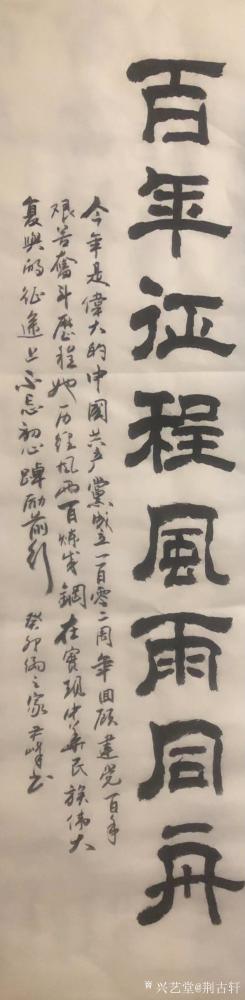 百年征程風雨同舟
今年是偉大的中國共产黨成立一百零二周年回顾建党百年
艰苦奮斗歷程她历经风雨百炼成鋼在实现中华民族伟大
复興的征途上不忘初心踔励前行
癸卯 之家尹峰书
兴艺堂@荆古轩